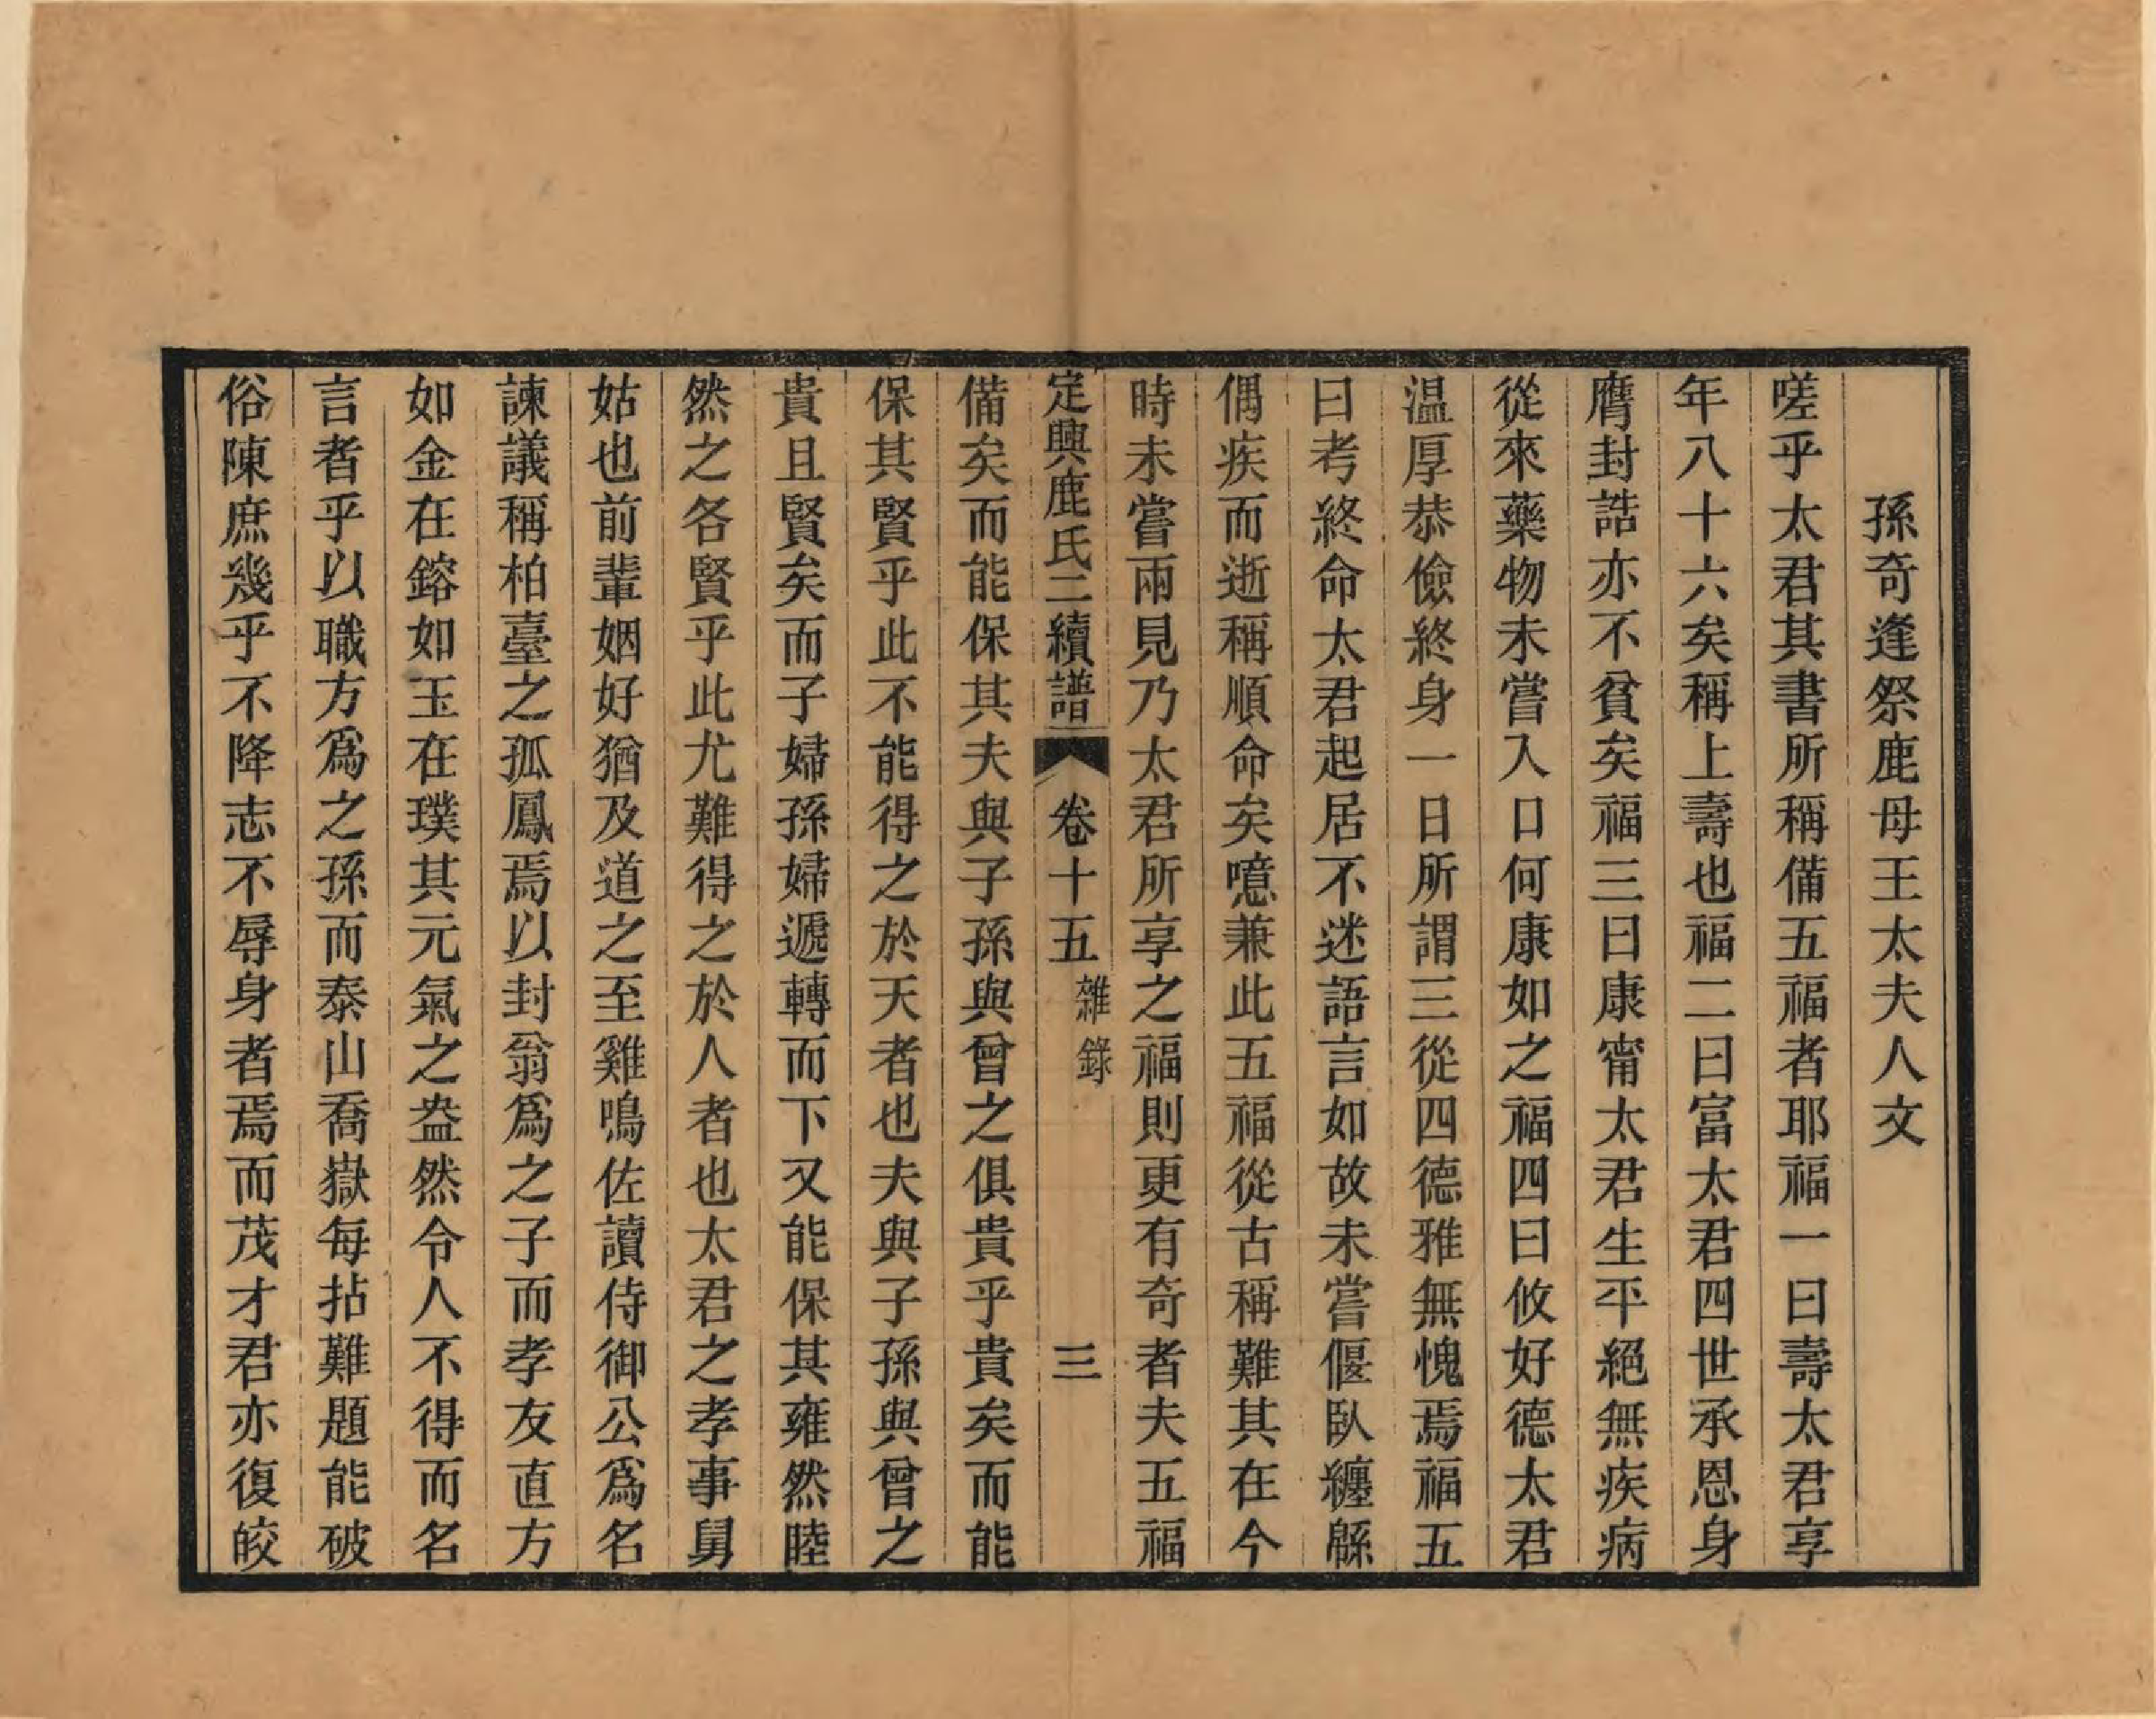 孫奇逢祭鹿母王太夫人文
嗟乎太君其書所稱備五福者耶福一曰壽太君享
年八十六矣稱上壽也福二曰富太君四世承恩身
膺封誥亦不貧矣福三曰康甯太君生平絕無疾病
從來藥物未嘗入口何康如之福四曰攸好德太君
温厚恭儉終身一日所謂三從四德雅無愧焉福五
曰考終命太君起居不迷語言如故未嘗偃臥纏緜
偶疾而逝稱順命矣噫兼此五福從古稱難其在今
時未嘗兩見乃太君所享之福則更有奇者夫五福
定興鹿氏二續譜 卷十五 雜錄 三
備矣而能保其夫與子孫與曾之俱貴乎貴矣而能
保其賢乎此不能得之於天者也夫與子孫與曾之
貴且賢矣而子婦孫婦遞轉而下又能保其雍然睦
然之各賢乎此尤難得之於人者也太君之孝事舅
姑也前輩姻好猶及道之至雞鳴佐讀侍御公為名
諫議稱柏臺之孤鳳焉以封翁為之子而孝友直方
如金在鎔如玉在璞其元氣之盎然令人不得而名
言者乎以職方為之孫而泰山喬嶽每拈難題能破
俗陳庶幾乎不降志不辱身者焉而茂才君亦復皎